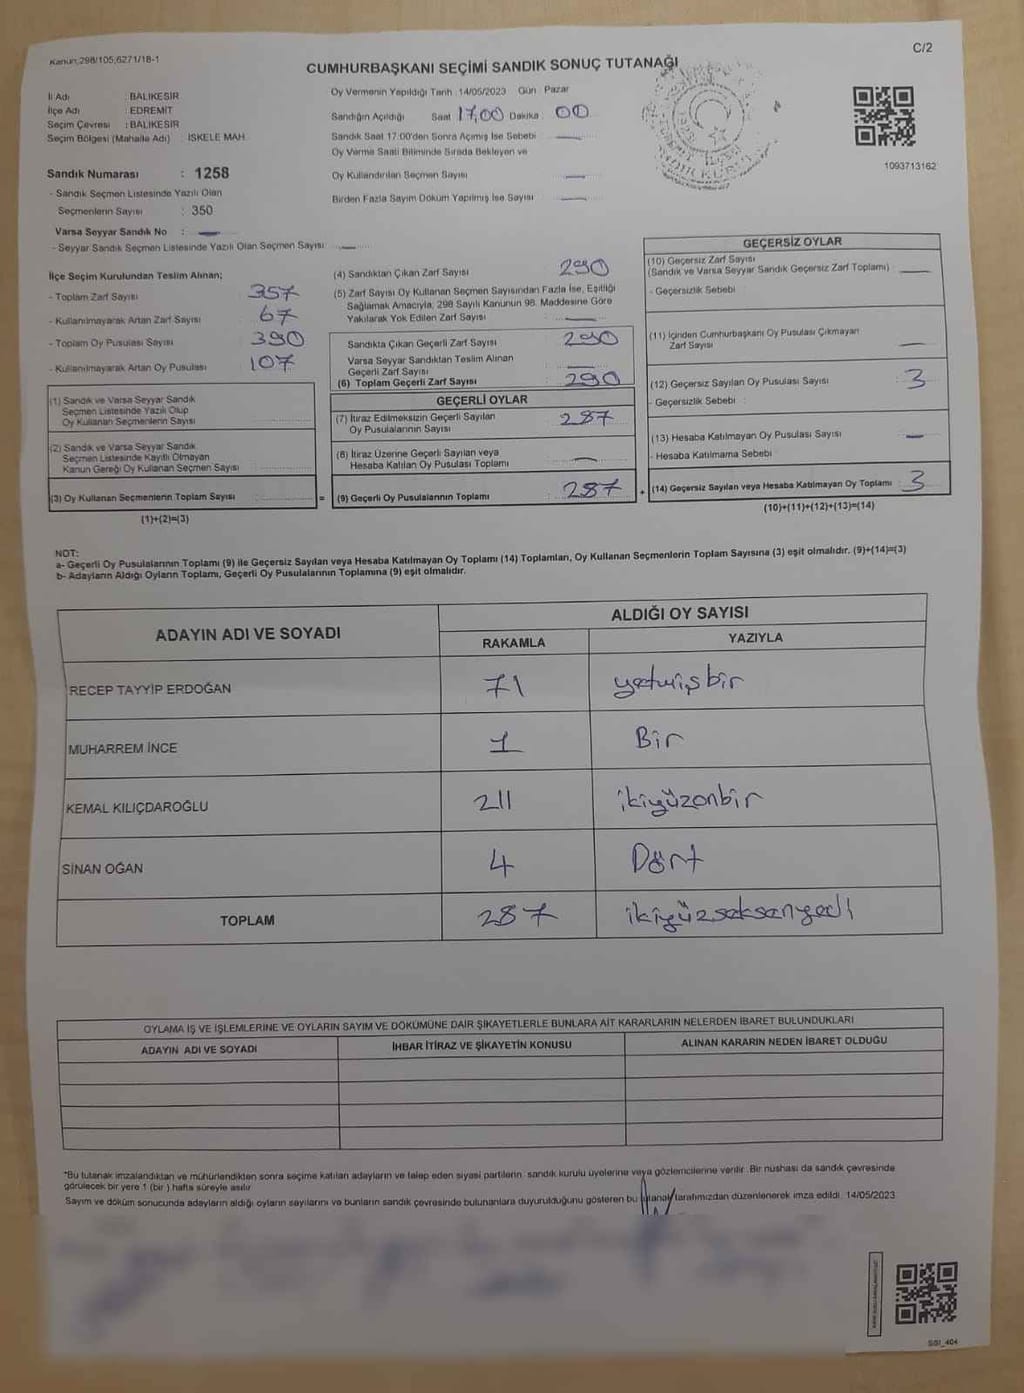 Kanun:298/105,6271/18-1
C/2
CUMHURBAŞKANI SEÇİMİ SANDIK SONUÇ TUTANAĞI
İl Adı : BALIKESİR
İlçe Adı : EDREMİT
Seçim Çevresi : BALIKESİR
Seçim Bölgesi (Mahalle Adı) : İSKELE MAH.
Sandık Numarası : 1258
- Sandık Seçmen Listesinde Yazılı Olan
Seçmenlerin Sayısı : 350
Varsa Seyyar Sandık No : —
- Seyyar Sandık Seçmen Listesinde Yazılı Olan Seçmen Sayısı : —
Oy Vermenin Yapıldığı Tarih : 14/05/2023 Gün : Pazar
Sandığın Açıldığı Saat 17,00 Dakika : 00
Sandık Saat 17:00'den Sonra Açılmış İse Sebebi : —
Oy Verme Saati Bitiminde Sırada Bekleyen ve
Oy Kullandırılan Seçmen Sayısı : —
Birden Fazla Sayım Döküm Yapılmış İse Sayısı : —
1093713162
İlçe Seçim Kurulundan Teslim Alınan;
- Toplam Zarf Sayısı : 357
- Kullanılmayarak Artan Zarf Sayısı : 67
- Toplam Oy Pusulası Sayısı : 390
- Kullanılmayarak Artan Oy Pusulası : 107
(1) Sandık ve Varsa Seyyar Sandık
Seçmen Listesinde Yazılı Olup
Oy Kullanan Seçmenlerin Sayısı
(2) Sandık ve Varsa Seyyar Sandık
Seçmen Listesinde Kayıtlı Olmayan
Kanun Gereği Oy Kullanan Seçmen Sayısı :
(3) Oy Kullanan Seçmenlerin Toplam Sayısı : =
(1)+(2)=(3)
(4) Sandıktan Çıkan Zarf Sayısı : 290
(5) Zarf Sayısı Oy Kullanan Seçmen Sayısından Fazla İse, Eşitliği
Sağlamak Amacıyla, 298 Sayılı Kanunun 98. Maddesine Göre
Yakılarak Yok Edilen Zarf Sayısı : —
Sandıkta Çıkan Geçerli Zarf Sayısı : 290
Varsa Seyyar Sandıktan Teslim Alınan
Geçerli Zarf Sayısı : —
(6) Toplam Geçerli Zarf Sayısı : 290
GEÇERLİ OYLAR
(7) İtiraz Edilmeksizin Geçerli Sayılan
Oy Pusulalarının Sayısı : 287
(8) İtiraz Üzerine Geçerli Sayılan veya
Hesaba Katılan Oy Pusulası Toplamı : —
(9) Geçerli Oy Pusulalarının Toplamı : 287 +
GEÇERSİZ OYLAR
(10) Geçersiz Zarf Sayısı
(Sandık ve Varsa Seyyar Sandık Geçersiz Zarf Toplamı) : —
- Geçersizlik Sebebi :
(11) İçinden Cumhurbaşkanı Oy Pusulası Çıkmayan
Zarf Sayısı : —
(12) Geçersiz Sayılan Oy Pusulası Sayısı : 3
- Geçersizlik Sebebi :
(13) Hesaba Katılmayan Oy Pusulası Sayısı : —
- Hesaba Katılmama Sebebi :
(14) Geçersiz Sayılan veya Hesaba Katılmayan Oy Toplamı : 3
(10)+(11)+(12)+(13)=(14)
NOT:
a- Geçerli Oy Pusulalarının Toplamı (9) ile Geçersiz Sayılan veya Hesaba Katılmayan Oy Toplamı (14) Toplamları, Oy Kullanan Seçmenlerin Toplam Sayısına (3) eşit olmalıdır. (9)+(14)=(3)
b- Adayların Aldığı Oyların Toplamı, Geçerli Oy Pusulalarının Toplamına (9) eşit olmalıdır.
ADAYIN ADI VE SOYADI
ALDIĞI OY SAYISI
RAKAMLA YAZIYLA
RECEP TAYYİP ERDOĞAN 71 yetmişbir
MUHARREM İNCE 1 Bir
KEMAL KILIÇDAROĞLU 211 ikiyüzonbir
SİNAN OĞAN 4 Dört
TOPLAM 287 ikiyüzseksenyedi
OYLAMA İŞ VE İŞLEMLERİNE VE OYLARIN SAYIM VE DÖKÜMÜNE DAİR ŞİKAYETLERLE BUNLARA AİT KARARLARIN NELERDEN İBARET BULUNDUKLARI
ADAYIN ADI VE SOYADI İHBAR İTİRAZ VE ŞİKAYETİN KONUSU ALINAN KARARIN NEDEN İBARET OLDUĞU
*Bu tutanak imzalandıktan ve mühürlendikten sonra seçime katılan adayların ve talep eden siyasi partilerin, sandık kurulu üyelerine veya gözlemcilerine verilir. Bir nüshası da sandık çevresinde
görülecek bir yere 1 (bir) hafta süreyle asılır
Sayım ve döküm sonucunda adayların aldığı oyların sayılarını ve bunların sandık çevresinde bulunanlara duyurulduğunu gösteren bu tutanak tarafımızdan düzenlenerek imza edildi. 14/05/2023
SGI_404